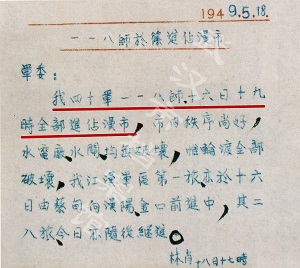 1949.5.18.
一一八師於篠進佔漢市
軍委：
我四十軍一一八師十六日十九
時全部進佔漢市，市內秩序尚好，
水電廠、水閘均無破壞，惟輪渡全部
破壞，我江漢軍區第一旅亦於十六
日由蔡甸向漢陽、金口前進中，其二
八旅今日亦隨後繼進。
林肖 十八日十七時